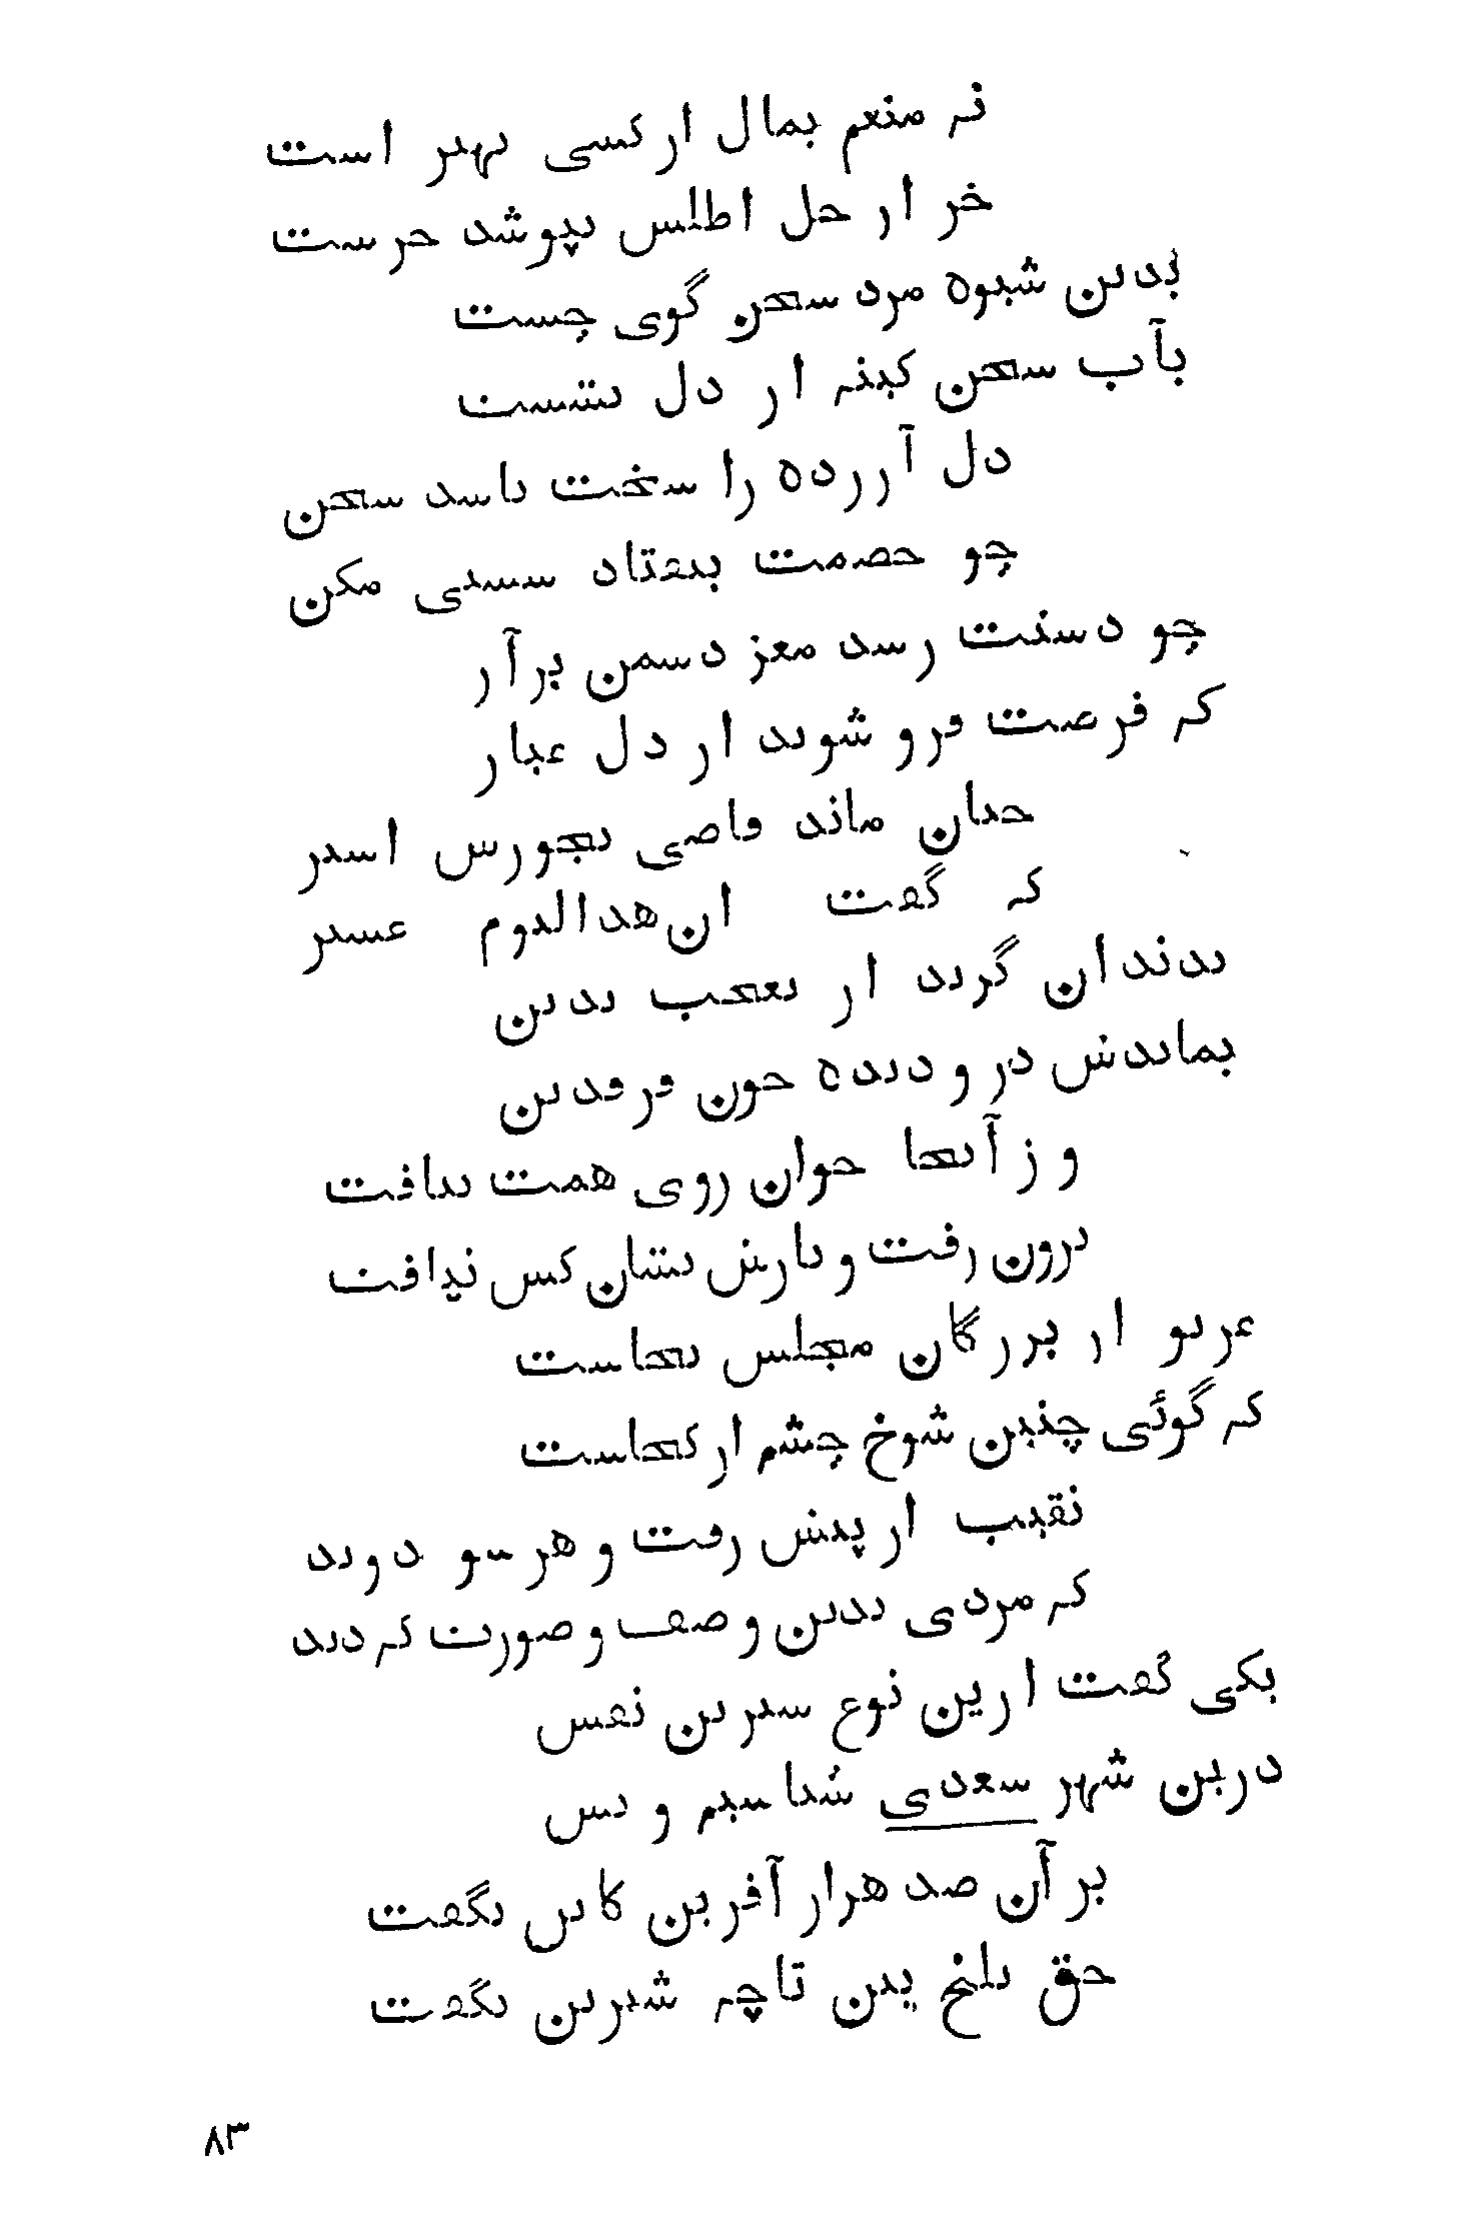 نه منعم بمال از کسی بهتر است
خر ار جل اطلس بپوشد خرست
بدین شیوه مرد سخن گوی چست
بآب سخن کینه از دل بشست
دل آزرده را سخت باشد سخن
چو خصمت بیفتاد سستی مکن
چو دستت رسد مغز دشمن برآر
که فرصت فرو شوید از دل غبار
چنان ماند قاضی بجورش اسیر
که گفت ان هذا لیوم عسیر
بدندان گزید از تعجب یدین
بماندش در و دیده چون فرقدین
و ز آنجا جوان روی همت بتافت
برون رفت و بازش نشان کس نیافت
غریو از بزرگان مجلس بخاست
که گوئی چنین شوخ چشم از کجاست
نقیب از پیش رفت و هر سو دوید
که مردی بدین وصف و صورت که دید
یکی گفت ازین نوع شیرین نفس
درین شهر سعدی شناسیم و بس
بر آن صد هزار آفرین کاین بگفت
حق تلخ بین تا چه شیرین بگفت
۸۳